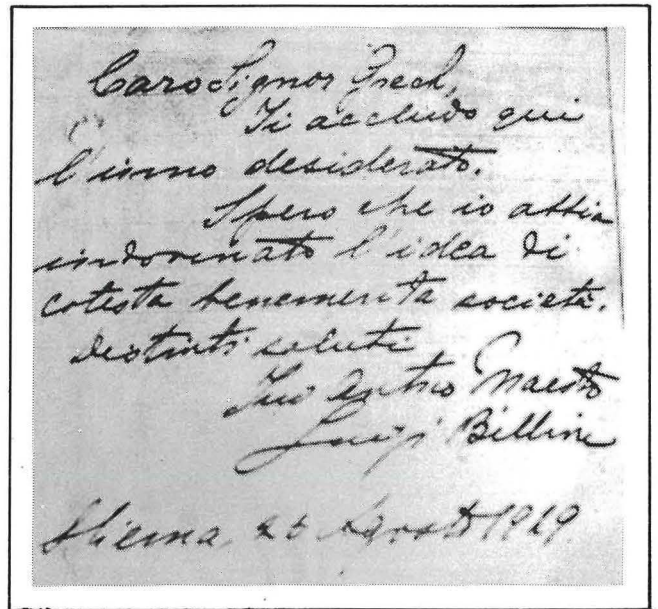 Caro Signor Grech,
Ti accludo qui
l'inno desiderato.
Spero che io abbia
indovinato l'idea di
cotesta benemerita società.
Distinti saluti
Tuo antico Maestro
Luigi Billion
Sliema, 25 Agosto 1929